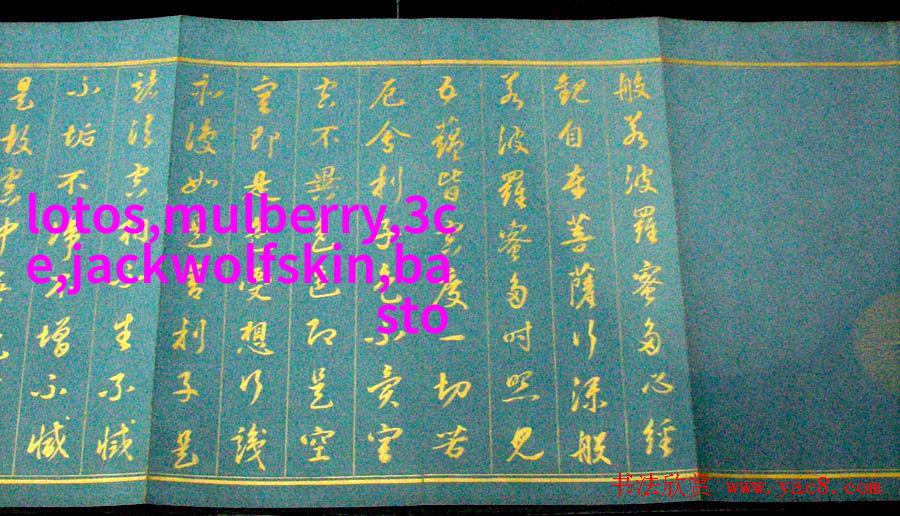 般若波羅蜜多心經
觀自在菩薩行深般
若波羅蜜多時照見
五蘊皆空度一切苦
厄舍利子色不異空
空不異色色即是空
空即是色受想行識
亦復如是舍利子是
諸法空相不生不滅
不垢不淨不增不減
是故空中
lotos,mulberry,3c
e,jackwolfskin,ba
sto
书法欣赏 www.yac8.com